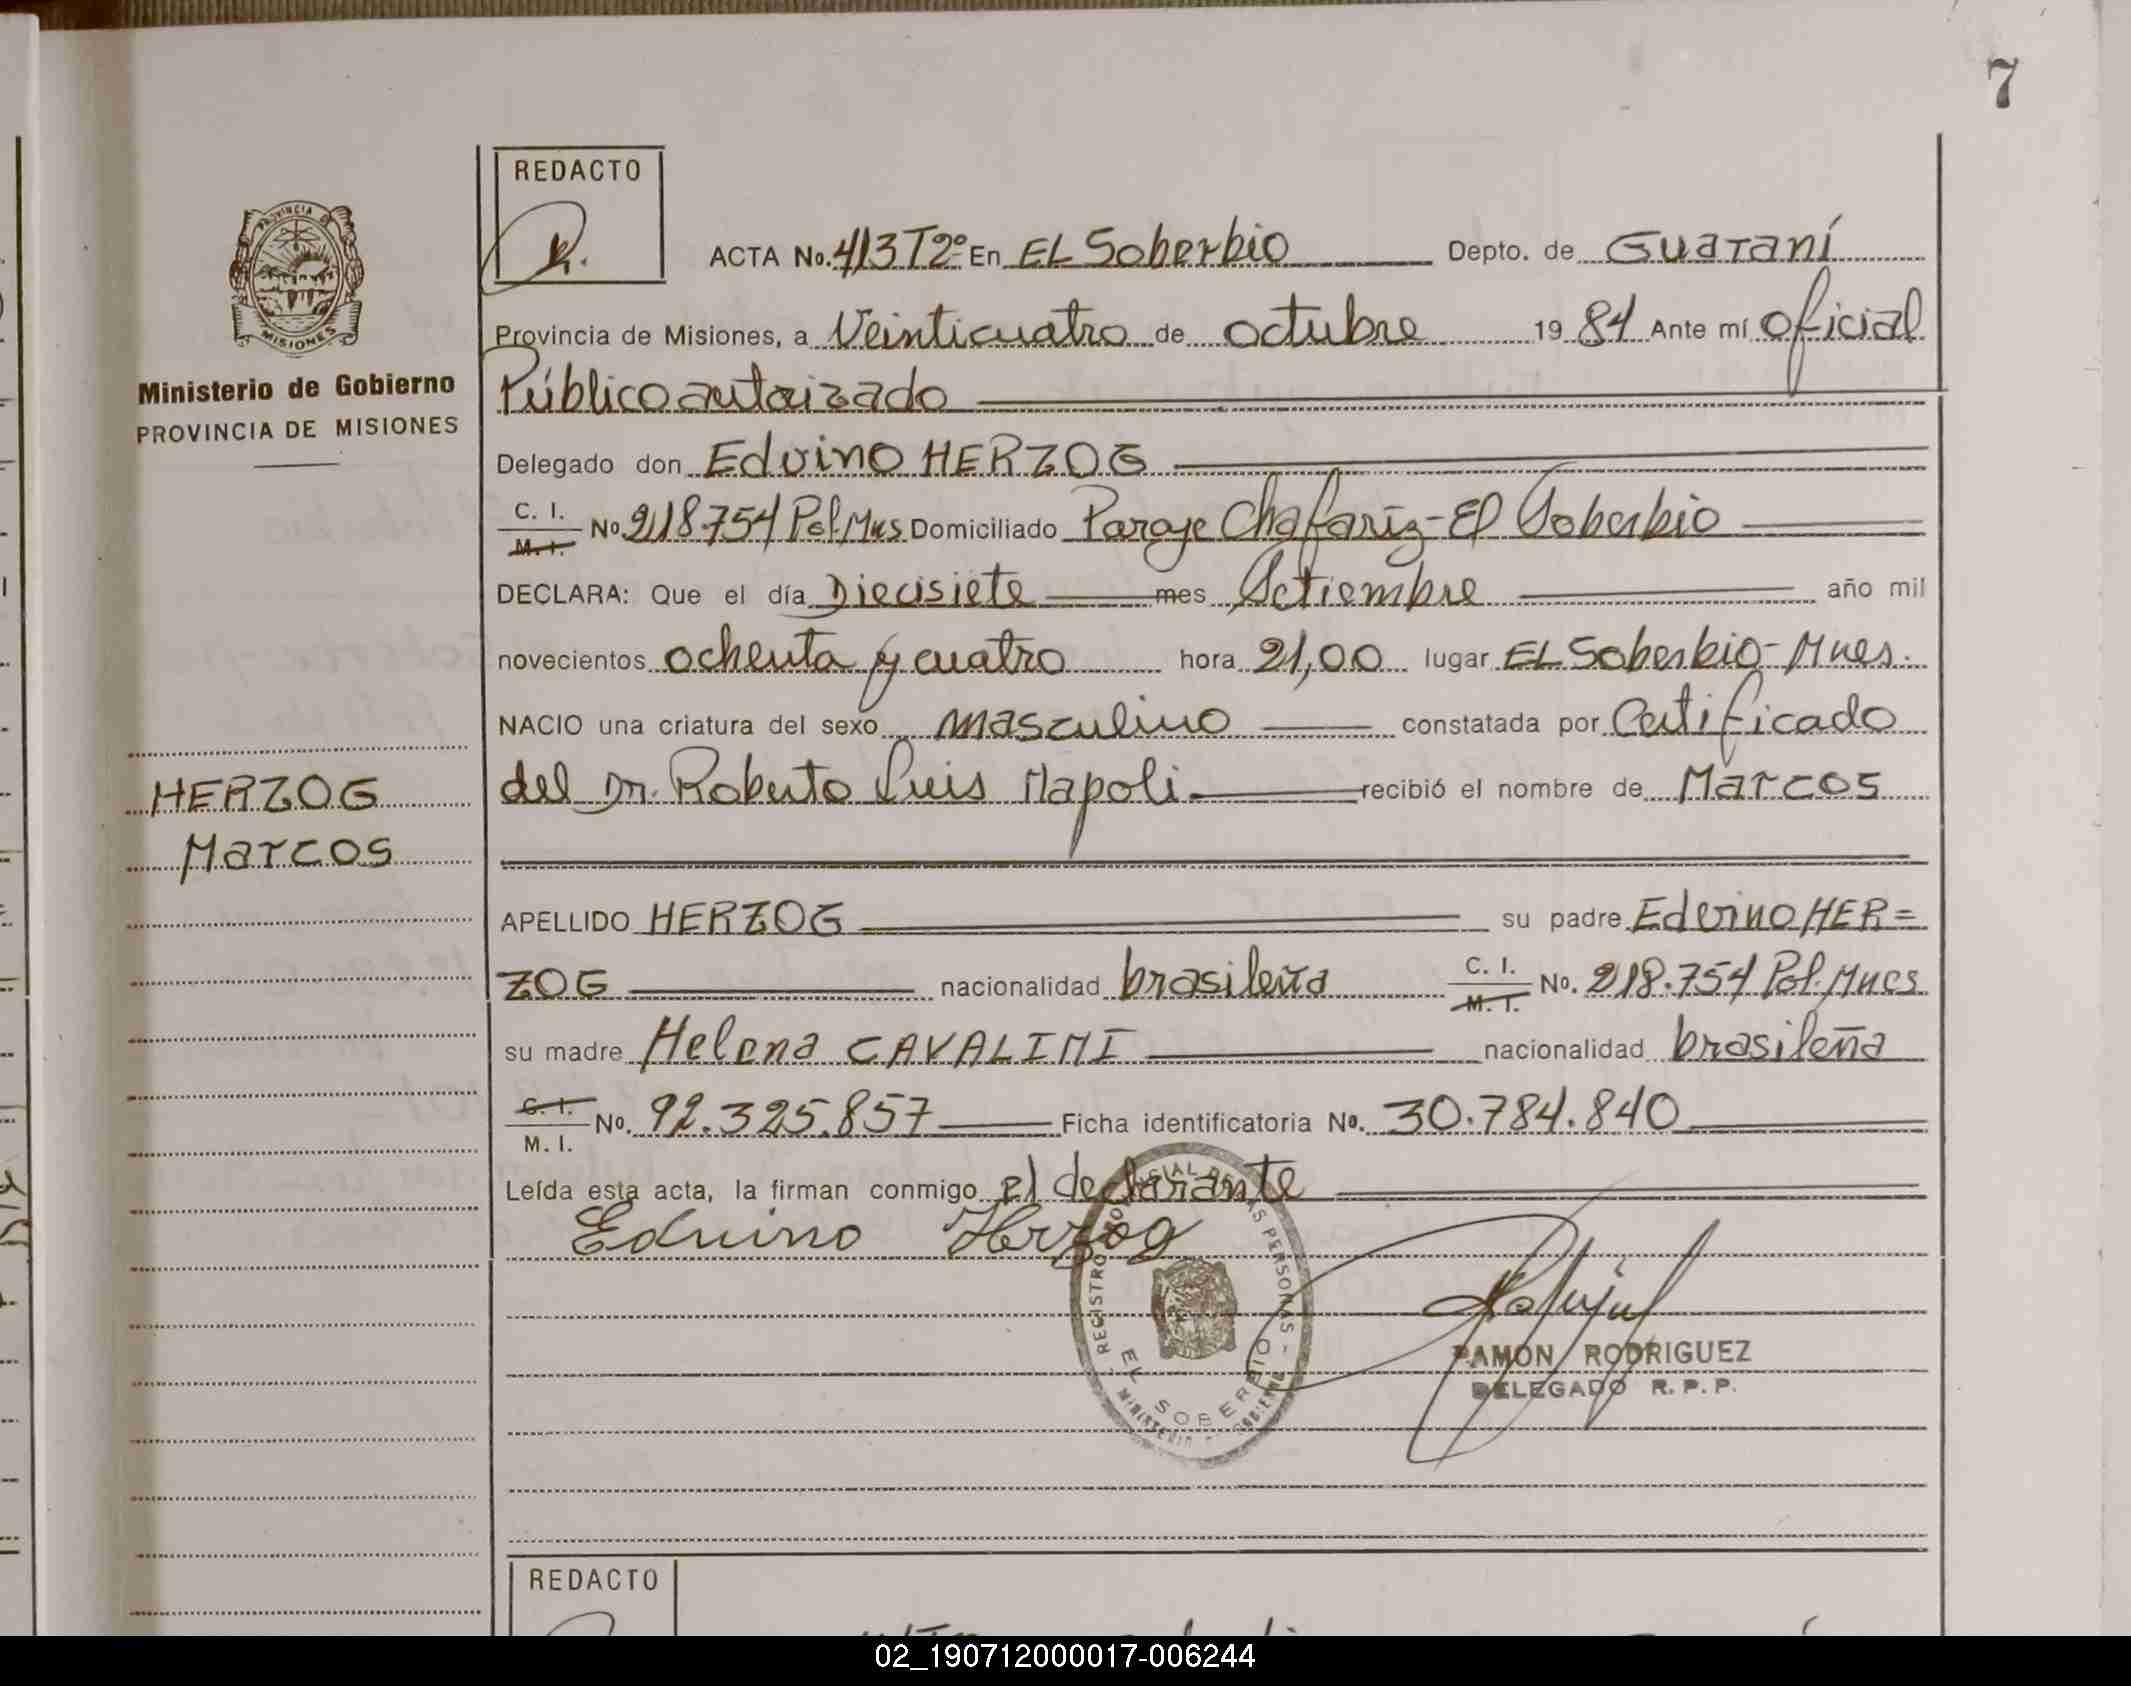 7
REDACTO
PROVINCIA DE
MISIONES
Ministerio de Gobierno
PROVINCIA DE MISIONES
HERZOG
Marcos
ACTA No. 413 T2º En EL Soberbio Depto. de Guaraní
Provincia de Misiones, a Veinticuatro de octubre 19 84 Ante mí oficial
Público autorizado
Delegado don Edvino HERZOG
C. I. M. I. No. 218.754 Pol. Mns Domiciliado Paraje Chafariz - El Soberbio
DECLARA: Que el día Diecisiete mes Setiembre año mil
novecientos ochenta y cuatro hora 21,00 lugar EL Soberbio - Mnes.
NACIO una criatura del sexo masculino constatada por Certificado
del Dr. Roberto Luis Napoli recibió el nombre de Marcos
APELLIDO HERZOG su padre Edvino HER=
ZOG nacionalidad brasileña C. I. M. I. No. 218.754 Pol. Mnes
su madre Helena CAVALINI nacionalidad brasileña
C. I. M. I. No. 92.325.857 Ficha identificatoria No. 30.784.840
Leída esta acta, la firman conmigo el declarante
Edvino Herzog
REGISTRO PROVINCIAL DE LAS PERSONAS -
EL SOBERBIO
MINISTERIO DE GOBIERNO
RAMON RODRIGUEZ
DELEGADO R. P. P.
REDACTO
02_190712000017-006244